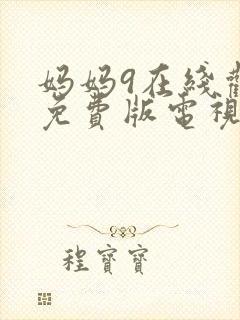 妈妈9在线觀
免費版電視
程寶寶